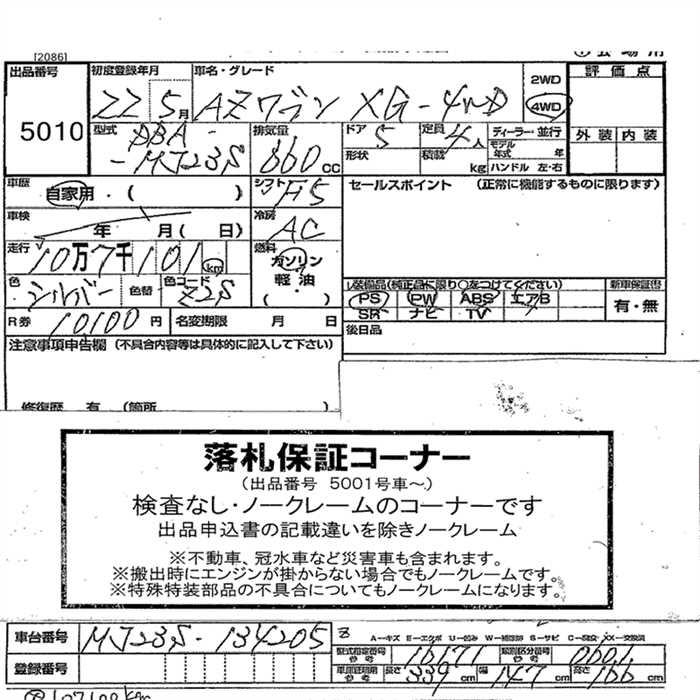 [2086]
出品番号 5010
初度登録年月 22 5月
車名・グレード AZワゴン XG-4WD
2WD
4WD
評価点
外装 内装
型式 DBA-
-MJ23S
排気量 660 CC
ドア 5
形状
定員 4人
積載 kg
ディーラー・並行
モデル年式 年
ハンドル 左・右
車歴 自家用・( )
シフト F5
セールスポイント (正常に機能するものに限ります)
車検 年 月( 日)
冷房 AC
走行 10万7千101km
燃料 ガソリン
軽油
・( )・
色 シルバー 色替 色コード Z2S
装備品(純正品に限り○をつけてください)
新車保証書
PS PW ABS エアB
SR ナビ TV
有・無
R券 10100円 名変期限 月 日
後日品
注意事項申告欄 (不具合内容等は具体的に記入して下さい)
修復歴 有 (箇所
落札保証コーナー
(出品番号 5001号車~)
検査なし・ノークレームのコーナーです
出品申込書の記載違いを除きノークレーム
※不動車、冠水車など災害車も含まれます。
※搬出時にエンジンが掛からない場合でもノークレームです。
※特殊特装部品の不具合についてもノークレームになります。
車台番号 MJ23S-134205
A-キズ E-エクボ U-凹み W-補修跡 S-サビ C-腐食 XX-交換済
型式指定番号 参考 16171 類別区分番号 参考 0601
登録番号
長さ 339 cm 幅 147 cm 高さ 166 cm